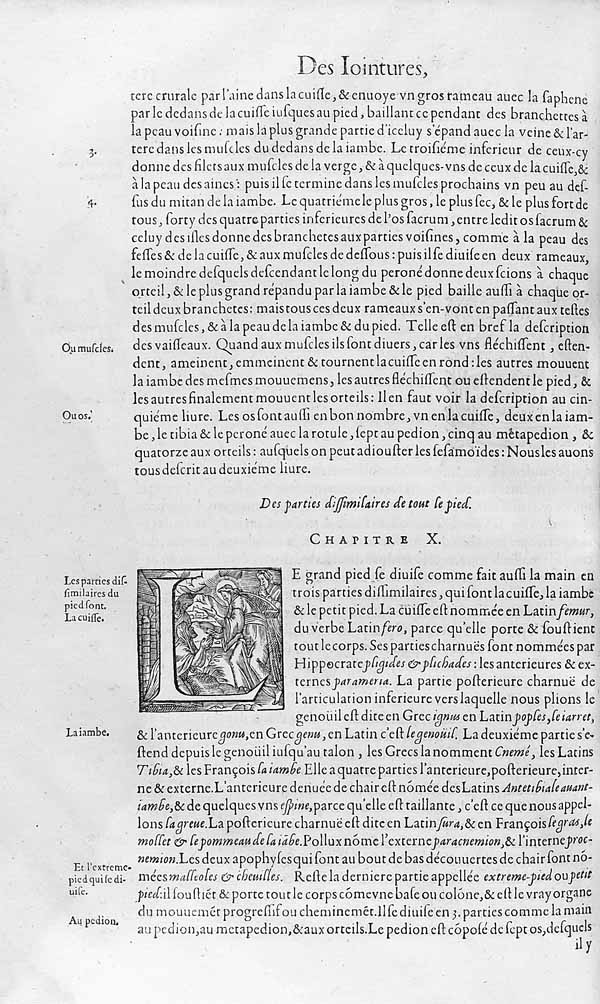 Des Iointures,
tere crurale par l'aine dans la cuiſſe, & enuoye vn gros rameau auec la ſaphene
par le dedans de la cuiſſe iuſques au pied, baillant ce pendant des branchettes à
la peau voiſine: mais la plus grande partie d'iceluy s'épand auec la veine & l'ar-
3.
tere dans les muſcles du dedans de la iambe. Le troiſiéme inferieur de ceux-cy
donne des filets aux muſcles de la verge, & à quelques-vns de ceux de la cuiſſe, &
à la peau des aines: puis il ſe termine dans les muſcles prochains vn peu au deſ-
4.
ſus du mitan de la iambe. Le quatriéme le plus gros, le plus ſec, & le plus fort de
tous, ſorty des quatre parties inferieures de l'os ſacrum, entre ledit os ſacrum &
celuy des iſles donne des branchetes aux parties voiſines, comme à la peau des
feſſes & de la cuiſſe, & aux muſcles de deſſous: puis il ſe diuiſe en deux rameaux,
le moindre deſquels deſcendant le long du peroné donne deux ſcions à chaque
orteil, & le plus grand répandu par la iambe & le pied baille auſſi à chaque or-
teil deux branchetes: mais tous ces deux rameaux s'en-vont en paſſant aux teſtes
des muſcles, & à la peau de la iambe & du pied. Telle eſt en bref la deſcription
Ou muſcles.
des vaiſſeaux. Quand aux muſcles ils ſont diuers, car les vns fléchiſſent, eſten-
dent, ameinent, emmeinent & tournent la cuiſſe en rond: les autres mouuent
la iambe des meſmes mouuemens, les autres fléchiſſent ou eſtendent le pied, &
les autres finalement mouuent les orteils: Il en faut voir la deſcription au cin-
Ou os.
quiéme liure. Les os ſont auſſi en bon nombre, vn en la cuiſſe, deux en la iam-
be, le tibia & le peroné auec la rotule, ſept au pedion, cinq au métapedion, &
quatorze aux orteils: auſquels on peut adiouſter les ſeſamoïdes: Nous les auons
tous deſcrit au deuxiéme liure.
Des parties diſſimilaires de tout le pied.
CHAPITRE X.
Les parties diſ-
ſimilaires du
pied ſont.
La cuiſſe.
LE grand pied ſe diuiſe comme fait auſſi la main en
trois parties diſſimilaires, qui ſont la cuiſſe, la iambe
& le petit pied. La cuiſſe eſt nommée en Latin femur,
du verbe Latin fero, parce qu'elle porte & ſouſtient
tout le corps. Ses parties charnuës ſont nommées par
Hippocrate pſigides & plichades: les anterieures & ex-
ternes parameria. La partie poſterieure charnuë de
l'articulation inferieure vers laquelle nous plions le
genoüil eſt dite en Grec ignus en Latin poples, le iarret,
La iambe.
& l'anterieure gonu, en Grec genu, en Latin c'eſt le genoüil. La deuxiéme partie s'e-
ſtend depuis le genoüil iuſqu'au talon, les Grecs la nomment Cnemé, les Latins
Tibia, & les François la iambe Elle a quatre parties l'anterieure, poſterieure, inter-
ne & externe. L'anterieure denuée de chair eſt nómée des Latins Antetibiale auant-
iambe, & de quelques vns eſpine, parce qu'elle eſt taillante, c'eſt ce que nous appel-
lons la greue. La poſterieure charnuë eſt dite en Latin ſura, & en François le gras, le
mollet & le pommeau de la iãbe. Pollux nóme l'externe paracnemion, & l'interne proc-
nemion. Les deux apophyſes qui ſont au bout de bas découuertes de chair ſont nó-
Et l'extreme-
pied qui ſe di-
uiſe.
mées malleoles & cheuilles. Reſte la derniere partie appellée extreme-pied ou petit
pied: il ſouſtiét & porte tout le corps cómevne baſe ou colóne, & eſt le vray organe
du mouuemét progreſſif ou cheminemét. Il ſe diuiſe en 3. parties comme la main
Au pedion.
au pedion, au metapedion, & aux orteils. Le pedion eſt cópoſé de ſept os, deſquels
il y